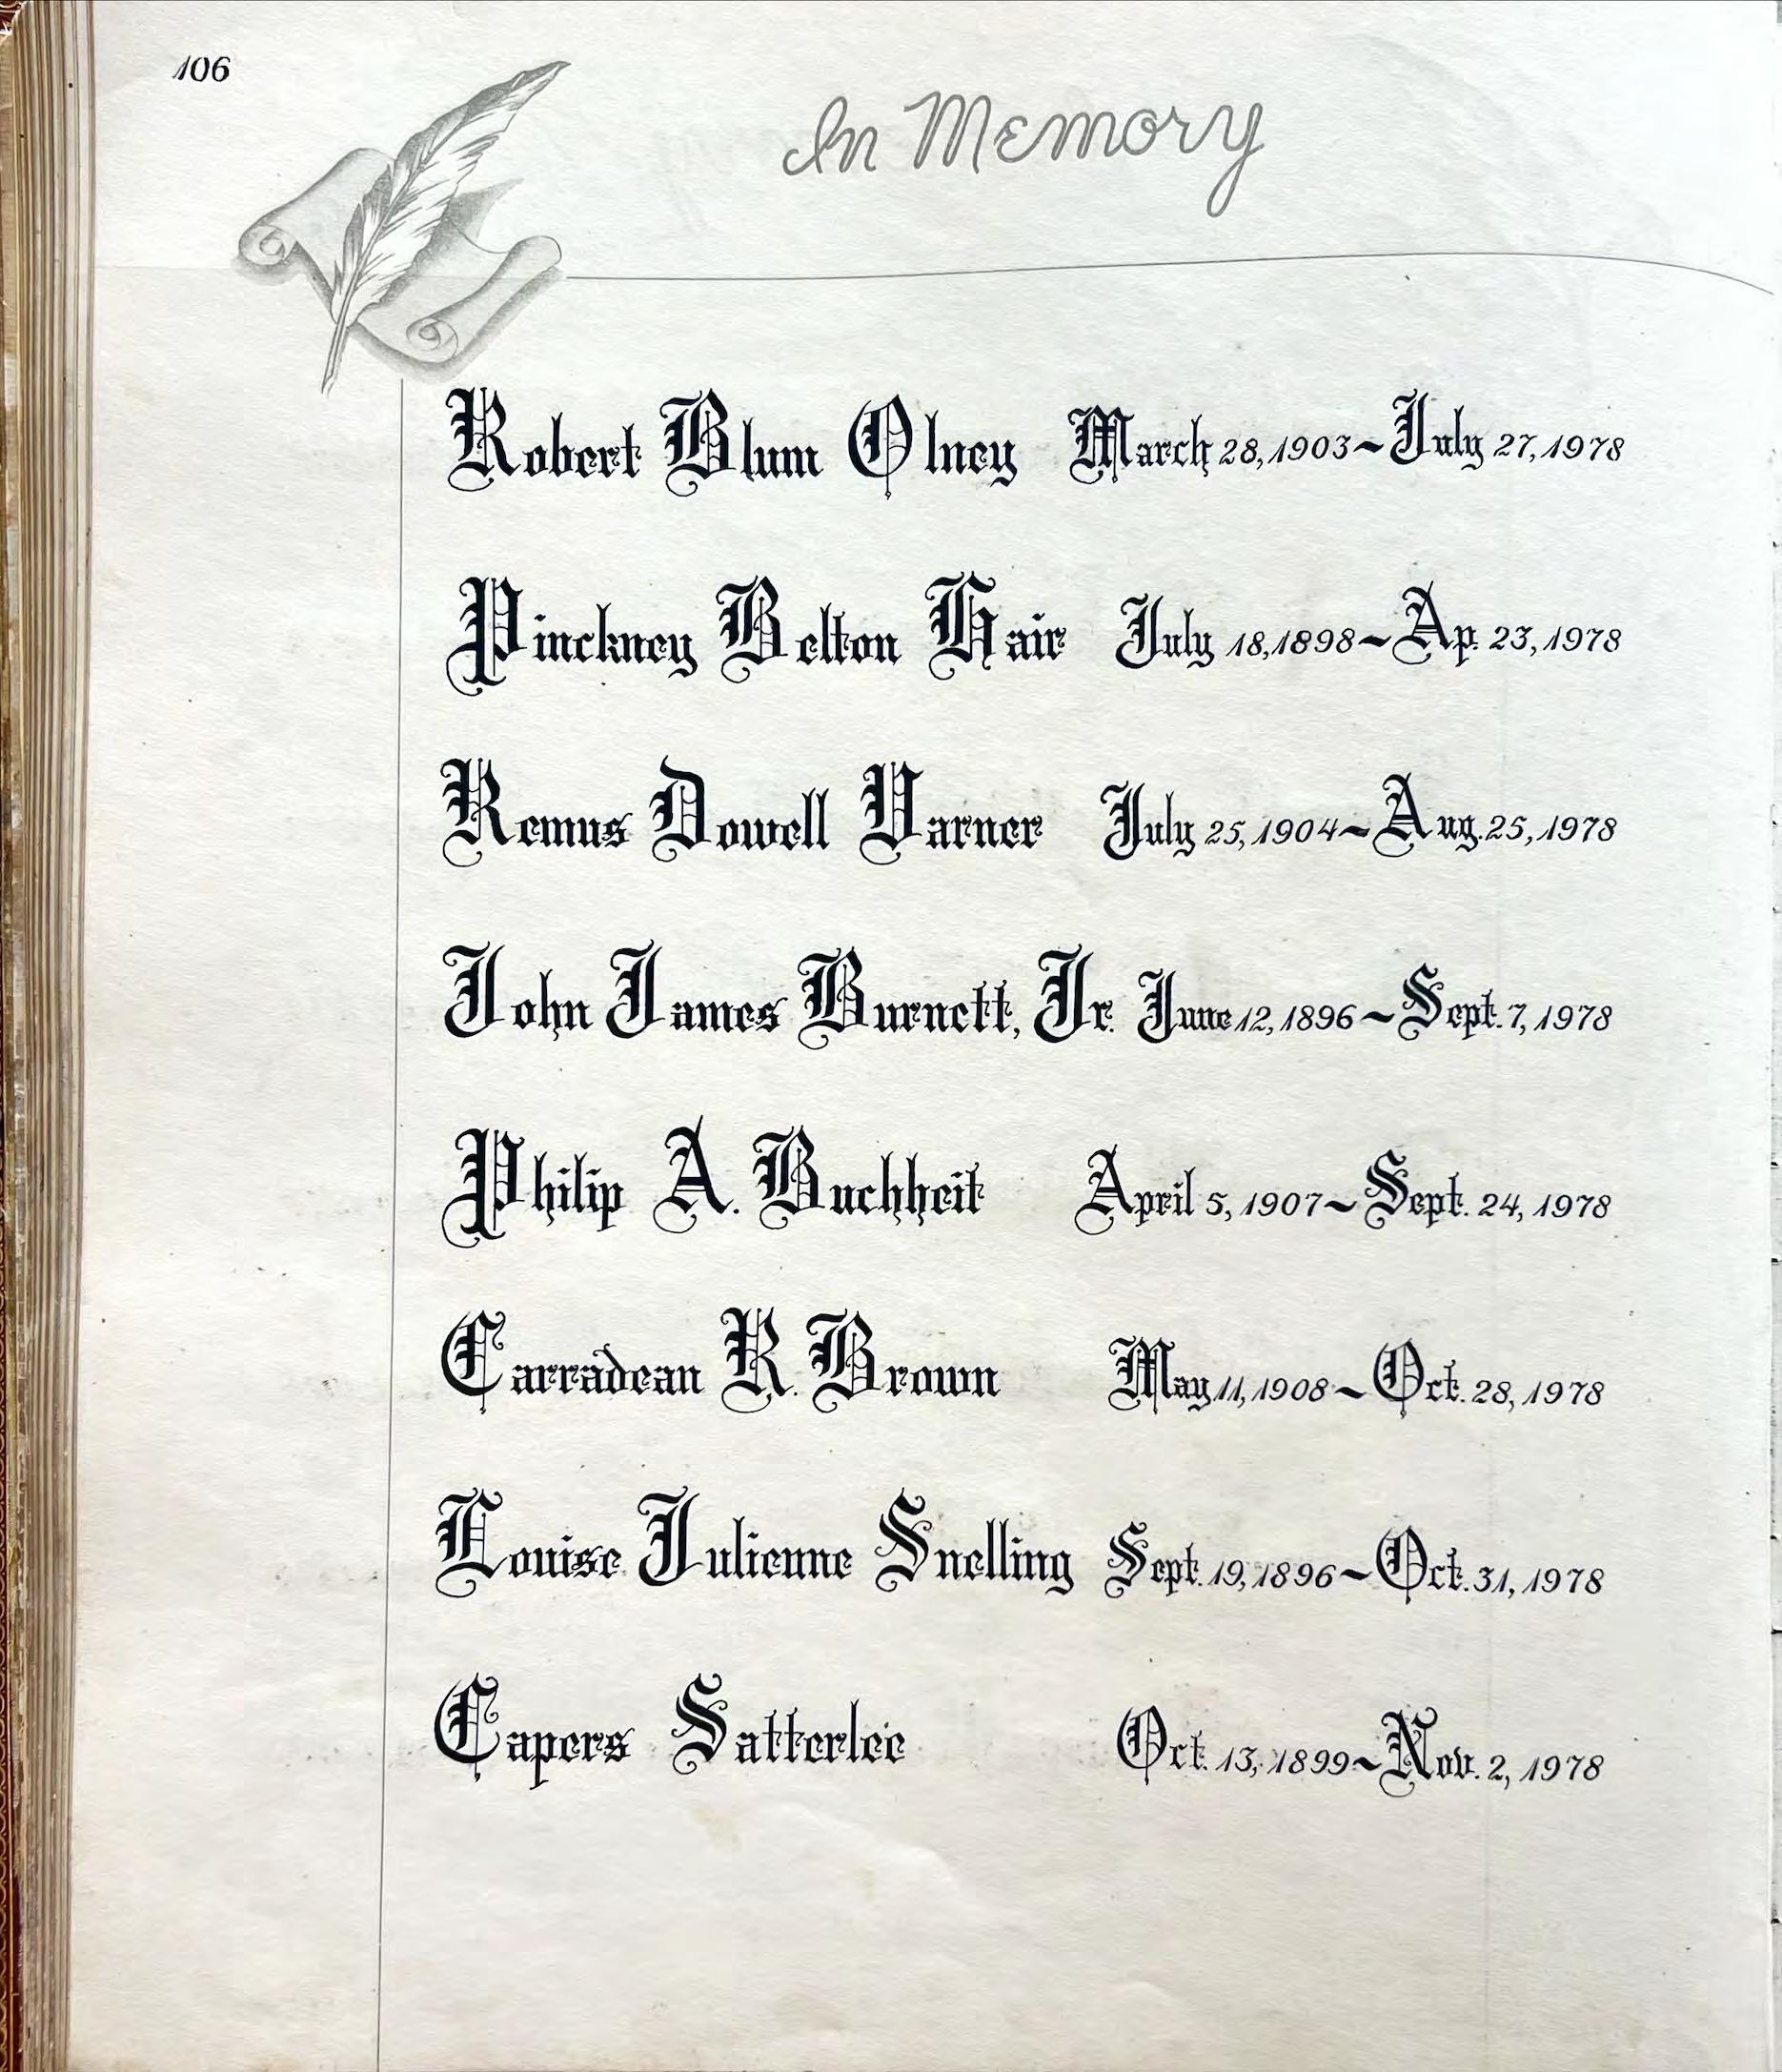 106
In Memory
Robert Blum Olney March 28, 1903~July 27, 1978
Pinckney Belton Hair July 18, 1898~Ap. 23, 1978
Remus Dowell Varner July 25, 1904~Aug. 25, 1978
John James Burnett, Jr. June 12, 1896~Sept. 7, 1978
Philip A. Buchheit April 5, 1907~Sept. 24, 1978
Carradean R. Brown May 11, 1908~Oct. 28, 1978
Louise Julienne Snelling Sept. 19, 1896~Oct. 31, 1978
Capers Satterlee Oct. 13, 1899~Nov. 2, 1978